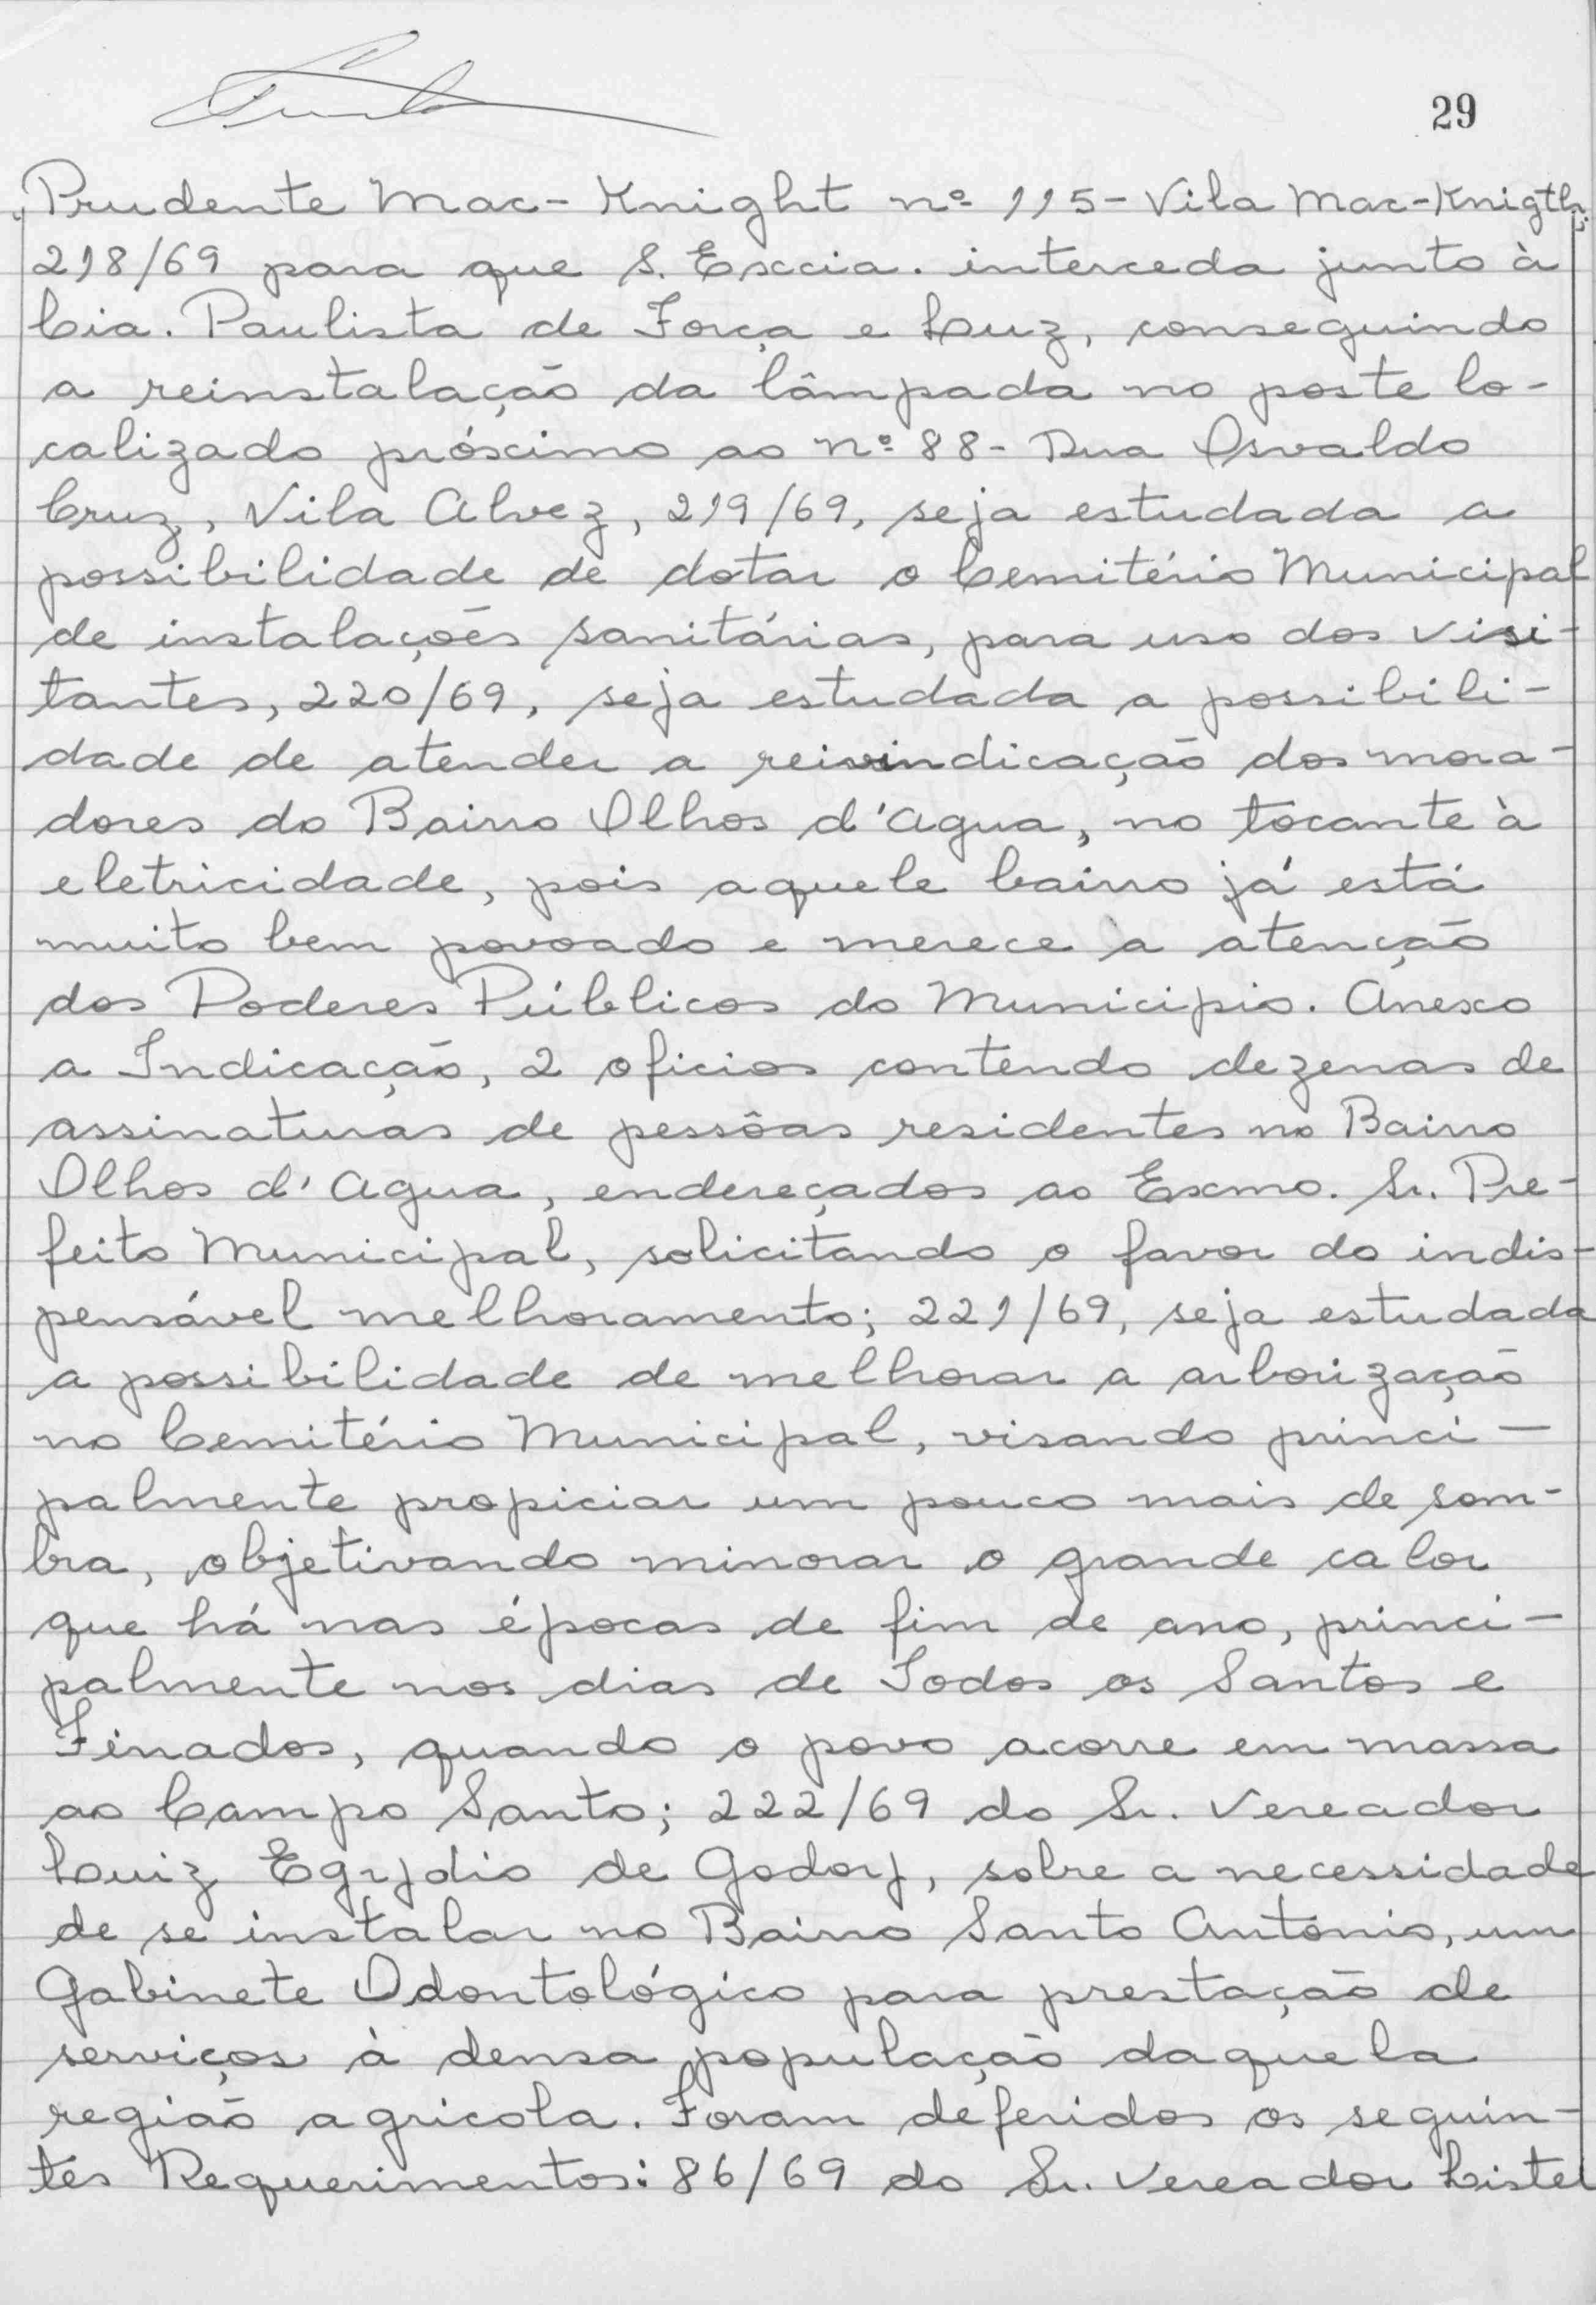 29
Prudente Mac-Knight nº 115 - Vila Mac-Knigth;
218/69 para que S. Excia. interceda junto à
Cia. Paulista de Força e Luz, conseguindo
a reinstalação da lâmpada no poste lo-
calizado próximo ao nº 88 - Rua Osvaldo
Cruz, Vila Alvez, 219/69, seja estudada a
possibilidade de dotar o Cemitério Municipal
de instalações sanitárias, para uso dos visi-
tantes, 220/69, seja estudada a possibili-
dade de atender a reivindicação dos mora-
dores do Bairro Olhos d'Agua, no tocante à
eletricidade, pois aquele bairro já está
muito bem povoado e merece a atenção
dos Poderes Públicos do Municipio. Anexo
a Indicação, 2 oficios contendo dezenas de
assinaturas de pessôas residentes no Bairro
Olhos d'Agua, endereçados ao Exmo. Sr. Pre-
feito Municipal, solicitando o favor do indis-
pensável melhoramento; 221/69, seja estudada
a possibilidade de melhorar a arborização
no Cemitério Municipal, visando princi-
palmente propiciar um pouco mais de som-
bra, objetivando minorar o grande calor
que há nas épocas de fim de ano, princi-
palmente nos dias de Todos os Santos e
Finados, quando o povo acorre em massa
ao Campo Santo; 222/69 do Sr. Vereador
Luiz Egydio de Godoy, sobre a necessidade
de se instalar no Bairro Santo Antonio, um
Gabinete Odontológico para prestação de
serviços à densa população daquela
região agricola. Foram deferidos os seguin-
tes Requerimentos: 86/69 do Sr. Vereador Lister